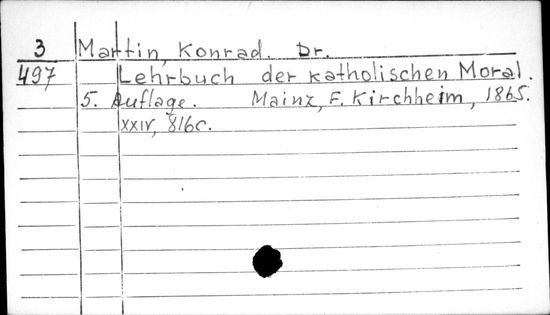 3 Martin, Konrad. Dr.
497 Lehrbuch der katholischen Moral.
5. Auflage. Mainz, F. Kirchheim, 1865.
XXIV, 816c.